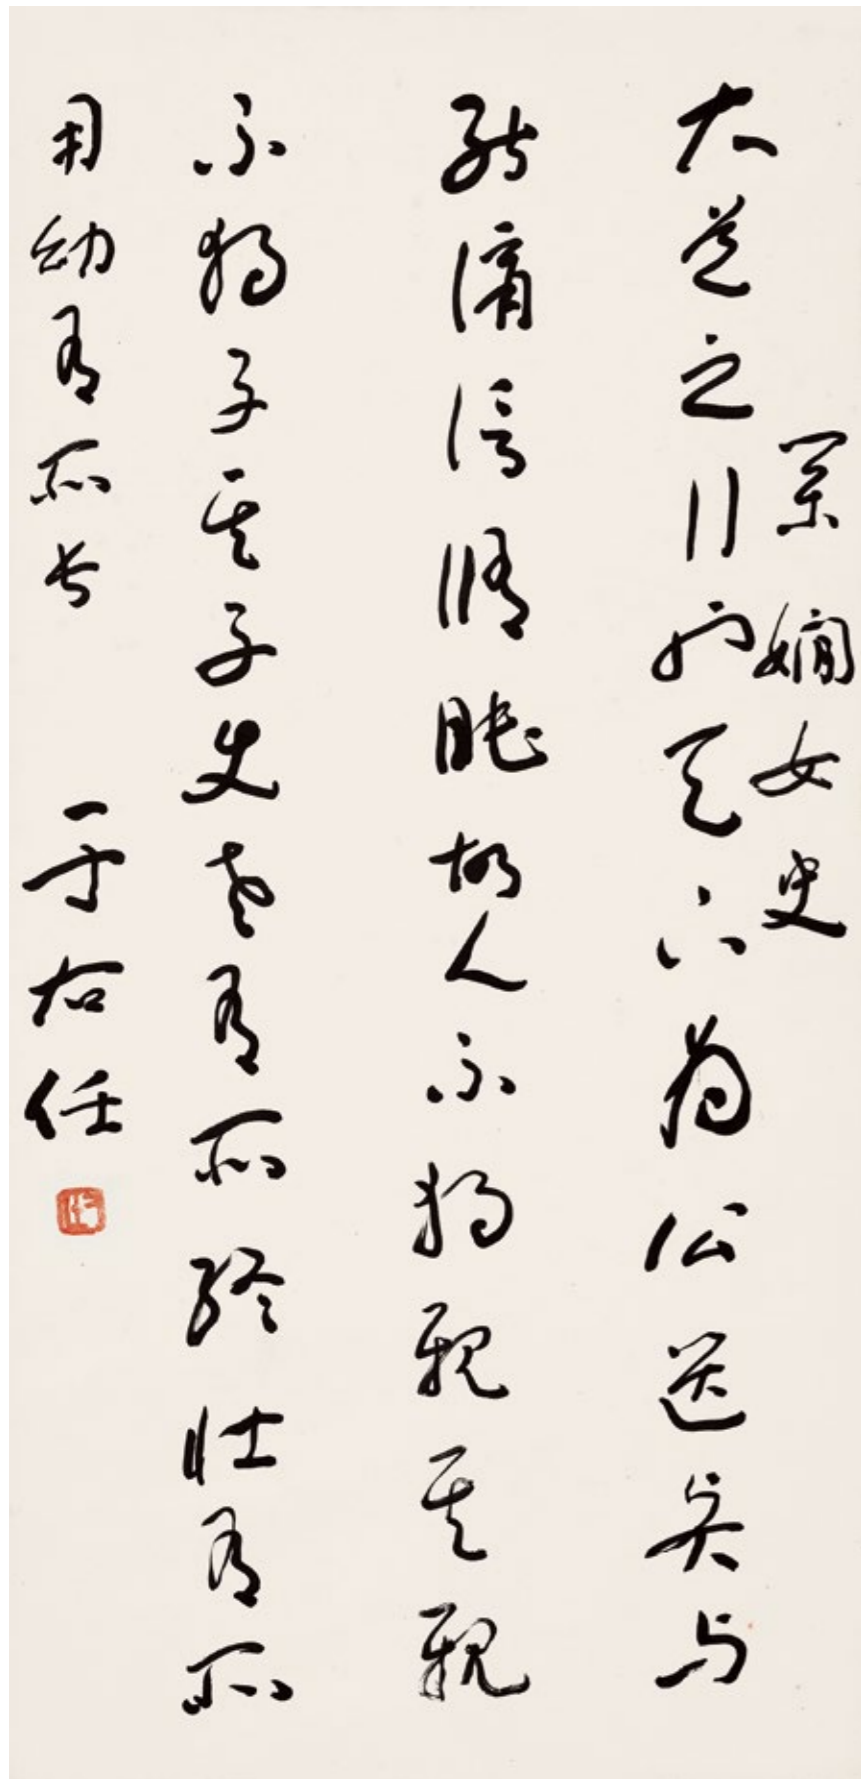 嫻女史
大道之行也天下為公選賢與
能講信修睦故人不獨親其親
不獨子其子使老有所終壯有所
用幼有所長 于右任